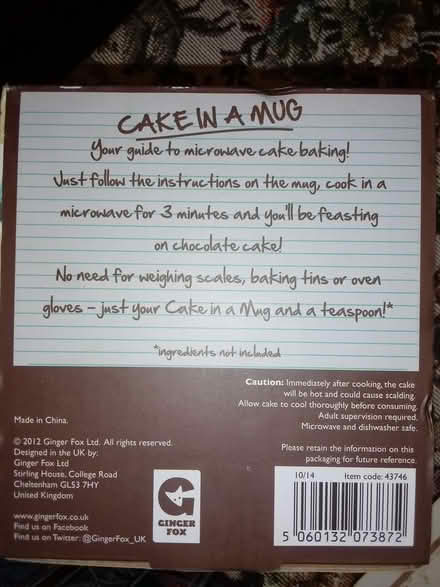 CAKE IN A MUG
Your guide to microwave cake baking!
Just follow the instructions on the mug, cook in a
microwave for 3 minutes and you'll be feasting
on chocolate cake!
No need for weighing scales, baking tins or oven
gloves – just your Cake in a Mug and a teaspoon!*
*ingredients not included
Caution: Immediately after cooking, the cake
will be hot and could cause scalding.
Allow cake to cool thoroughly before consuming.
Adult supervision required.
Microwave and dishwasher safe.
Please retain the information on this
packaging for future reference.
Made in China.
© 2012 Ginger Fox Ltd. All rights reserved.
Designed in the UK by:
Ginger Fox Ltd
Stirling House, College Road
Cheltenham GL53 7HY
United Kingdom
www.gingerfox.co.uk
Find us on Facebook
Find us on Twitter: @GingerFox_UK
GINGER
FOX
10/14 Item code: 43746
5 060132 073872